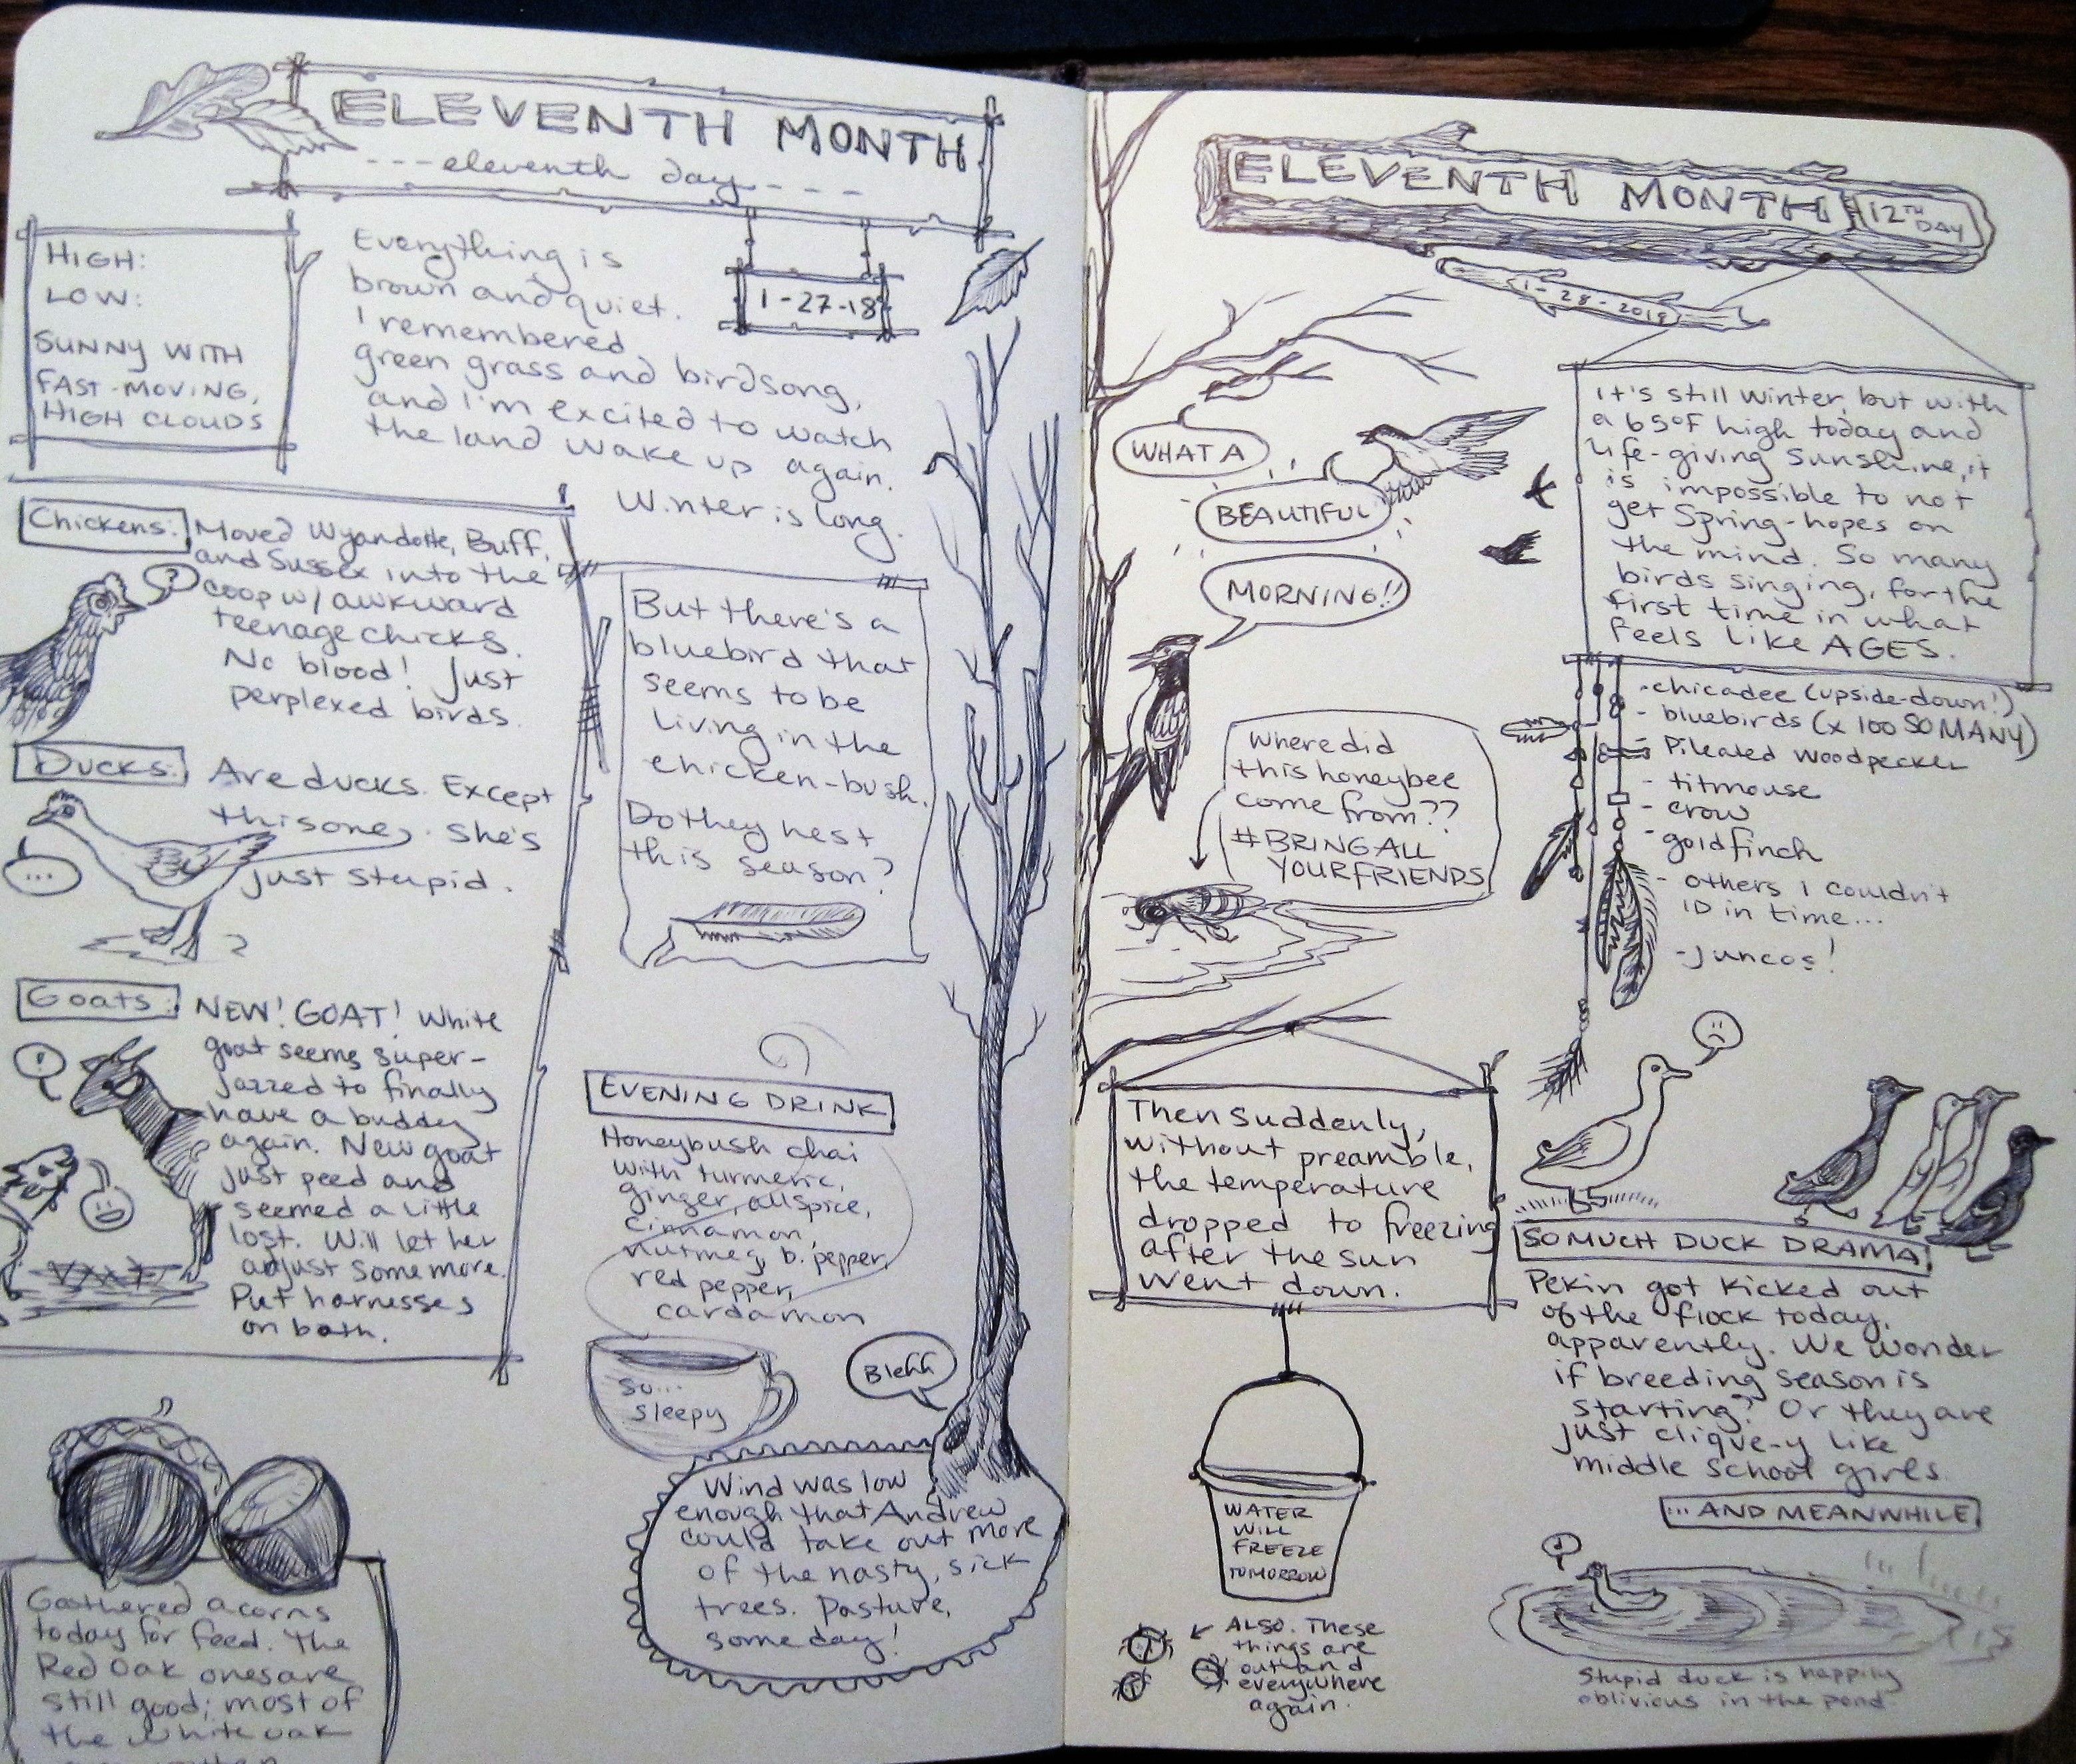 ELEVENTH MONTH
---eleventh day---
1-27-18
HIGH:
LOW:
SUNNY WITH
FAST-MOVING,
HIGH CLOUDS
Everything is
brown and quiet.
I remembered
green grass and birdsong,
and I'm excited to watch
the land wake up again.
Winter is long.
Chickens:
Moved Wyandotte, Buff,
and Sussex into the
coop w/ awkward
teenage chicks.
No blood! Just
perplexed birds.
?
Ducks:
Are ducks. Except
this one. She's
just stupid.
...
?
Goats:
NEW! GOAT! White
goat seems super-
jazzed to finally
have a buddy
again. New goat
just peed and
seemed a little
lost. Will let her
adjust some more.
Put harnesses
on both.
!
Gathered acorns
today for feed. The
Red Oak ones are
still good; most of
the White oak
But there's a
bluebird that
seems to be
living in the
chicken-bush.
Do they nest
this season?
EVENING DRINK
Honeybush chai
with turmeric,
ginger, allspice,
cinnamon,
nutmeg, b. pepper,
red pepper,
cardamon
So...
sleepy
Blehh
Wind was low
enough that Andrew
could take out more
of the nasty, sick
trees. Pasture,
someday!
ELEVENTH MONTH
12TH
DAY
1-28-2018
WHAT A
BEAUTIFUL
MORNING!!
It's still winter, but with
a 65°F high today and
life-giving sunshine, it
is impossible to not
get Spring-hopes on
the mind. So many
birds singing, for the
first time in what
feels like AGES.
-chicadee (upside-down!)
- bluebirds (x 100 SO MANY)
- Pileated Woodpecker
- titmouse
- crow
- goldfinch
- others I couldn't
ID in time...
-juncos!
Where did
this honeybee
come from??
#BRINGALL
YOURFRIENDS
Then suddenly,
without preamble,
the temperature
dropped to freezing
after the sun
went down.
WATER
WILL
FREEZE
TOMORROW
ALSO. These
things are
out and
everywhere
again.
SO MUCH DUCK DRAMA
Pekin got kicked out
of the flock today,
apparently. We wonder
if breeding season is
starting? Or they are
just clique-y like
middle school girls.
... AND MEANWHILE
Stupid duck is happily
oblivious in the pond